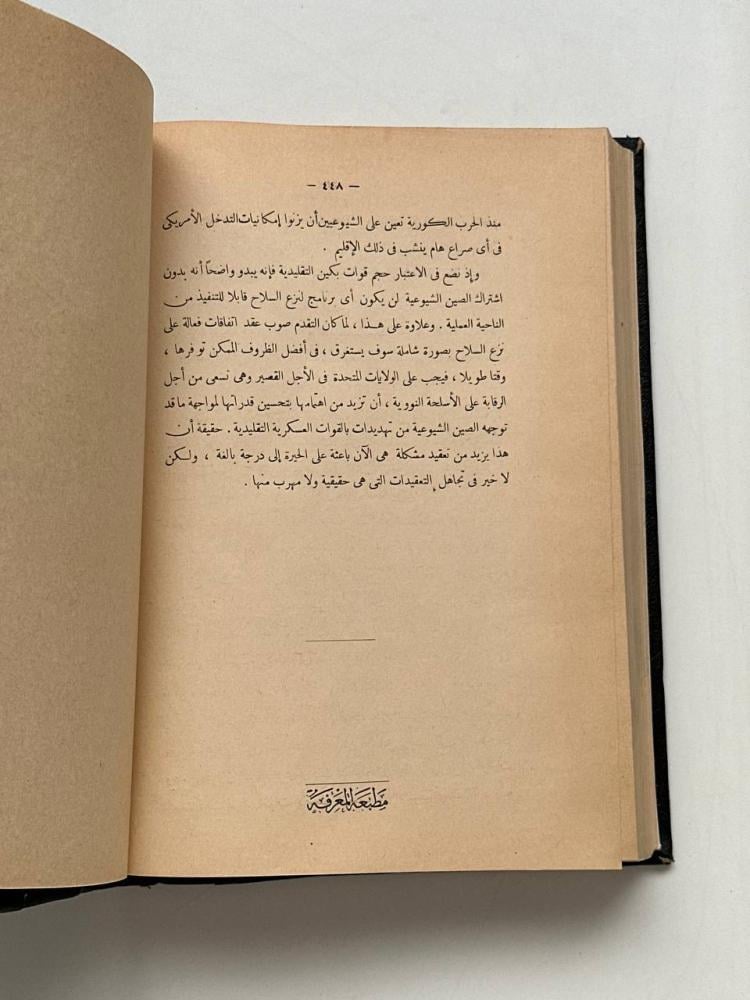 — ٤٤٨ —
منذ الحرب الكورية تعين على الشيوعيين أن يزنوا إمكانيات التدخل الأمريكى
فى أى صراع هام ينشب فى ذلك الإقليم .
وإذ نضع فى الاعتبار حجم قوات بكين التقليدية فإنه يبدو واضحاً أنه بدون
اشتراك الصين الشيوعية لن يكون أى برنامج لنزع السلاح قابلا للتنفيذ من
الناحية العملية . وعلاوة على هـذا ، لما كان التقدم صوب عقد اتفاقات فعالة على
نزع السلاح بصورة شاملة سوف يستغرق ، فى أفضل الظروف الممكن توفرها ،
وقتا طويلا ، فيجب على الولايات المتحدة فى الأجل القصير وهى تسعى من أجل
الرقابة على الأسلحة النووية ، أن تزيد من اهتمامها بتحسين قدراتها لمواجهة ما قد
توجهه الصين الشيوعية من تهديدات بالقوات العسكرية التقليدية . حقيقة أن
هذا يزيد من تعقيد مشكلة هى الآن باعثة على الحيرة إلى درجة بالغة ، ولـكن
لا خير فى تجاهل التعقيدات التى هى حقيقية ولا مهرب منها .
مطبعة المعرفة